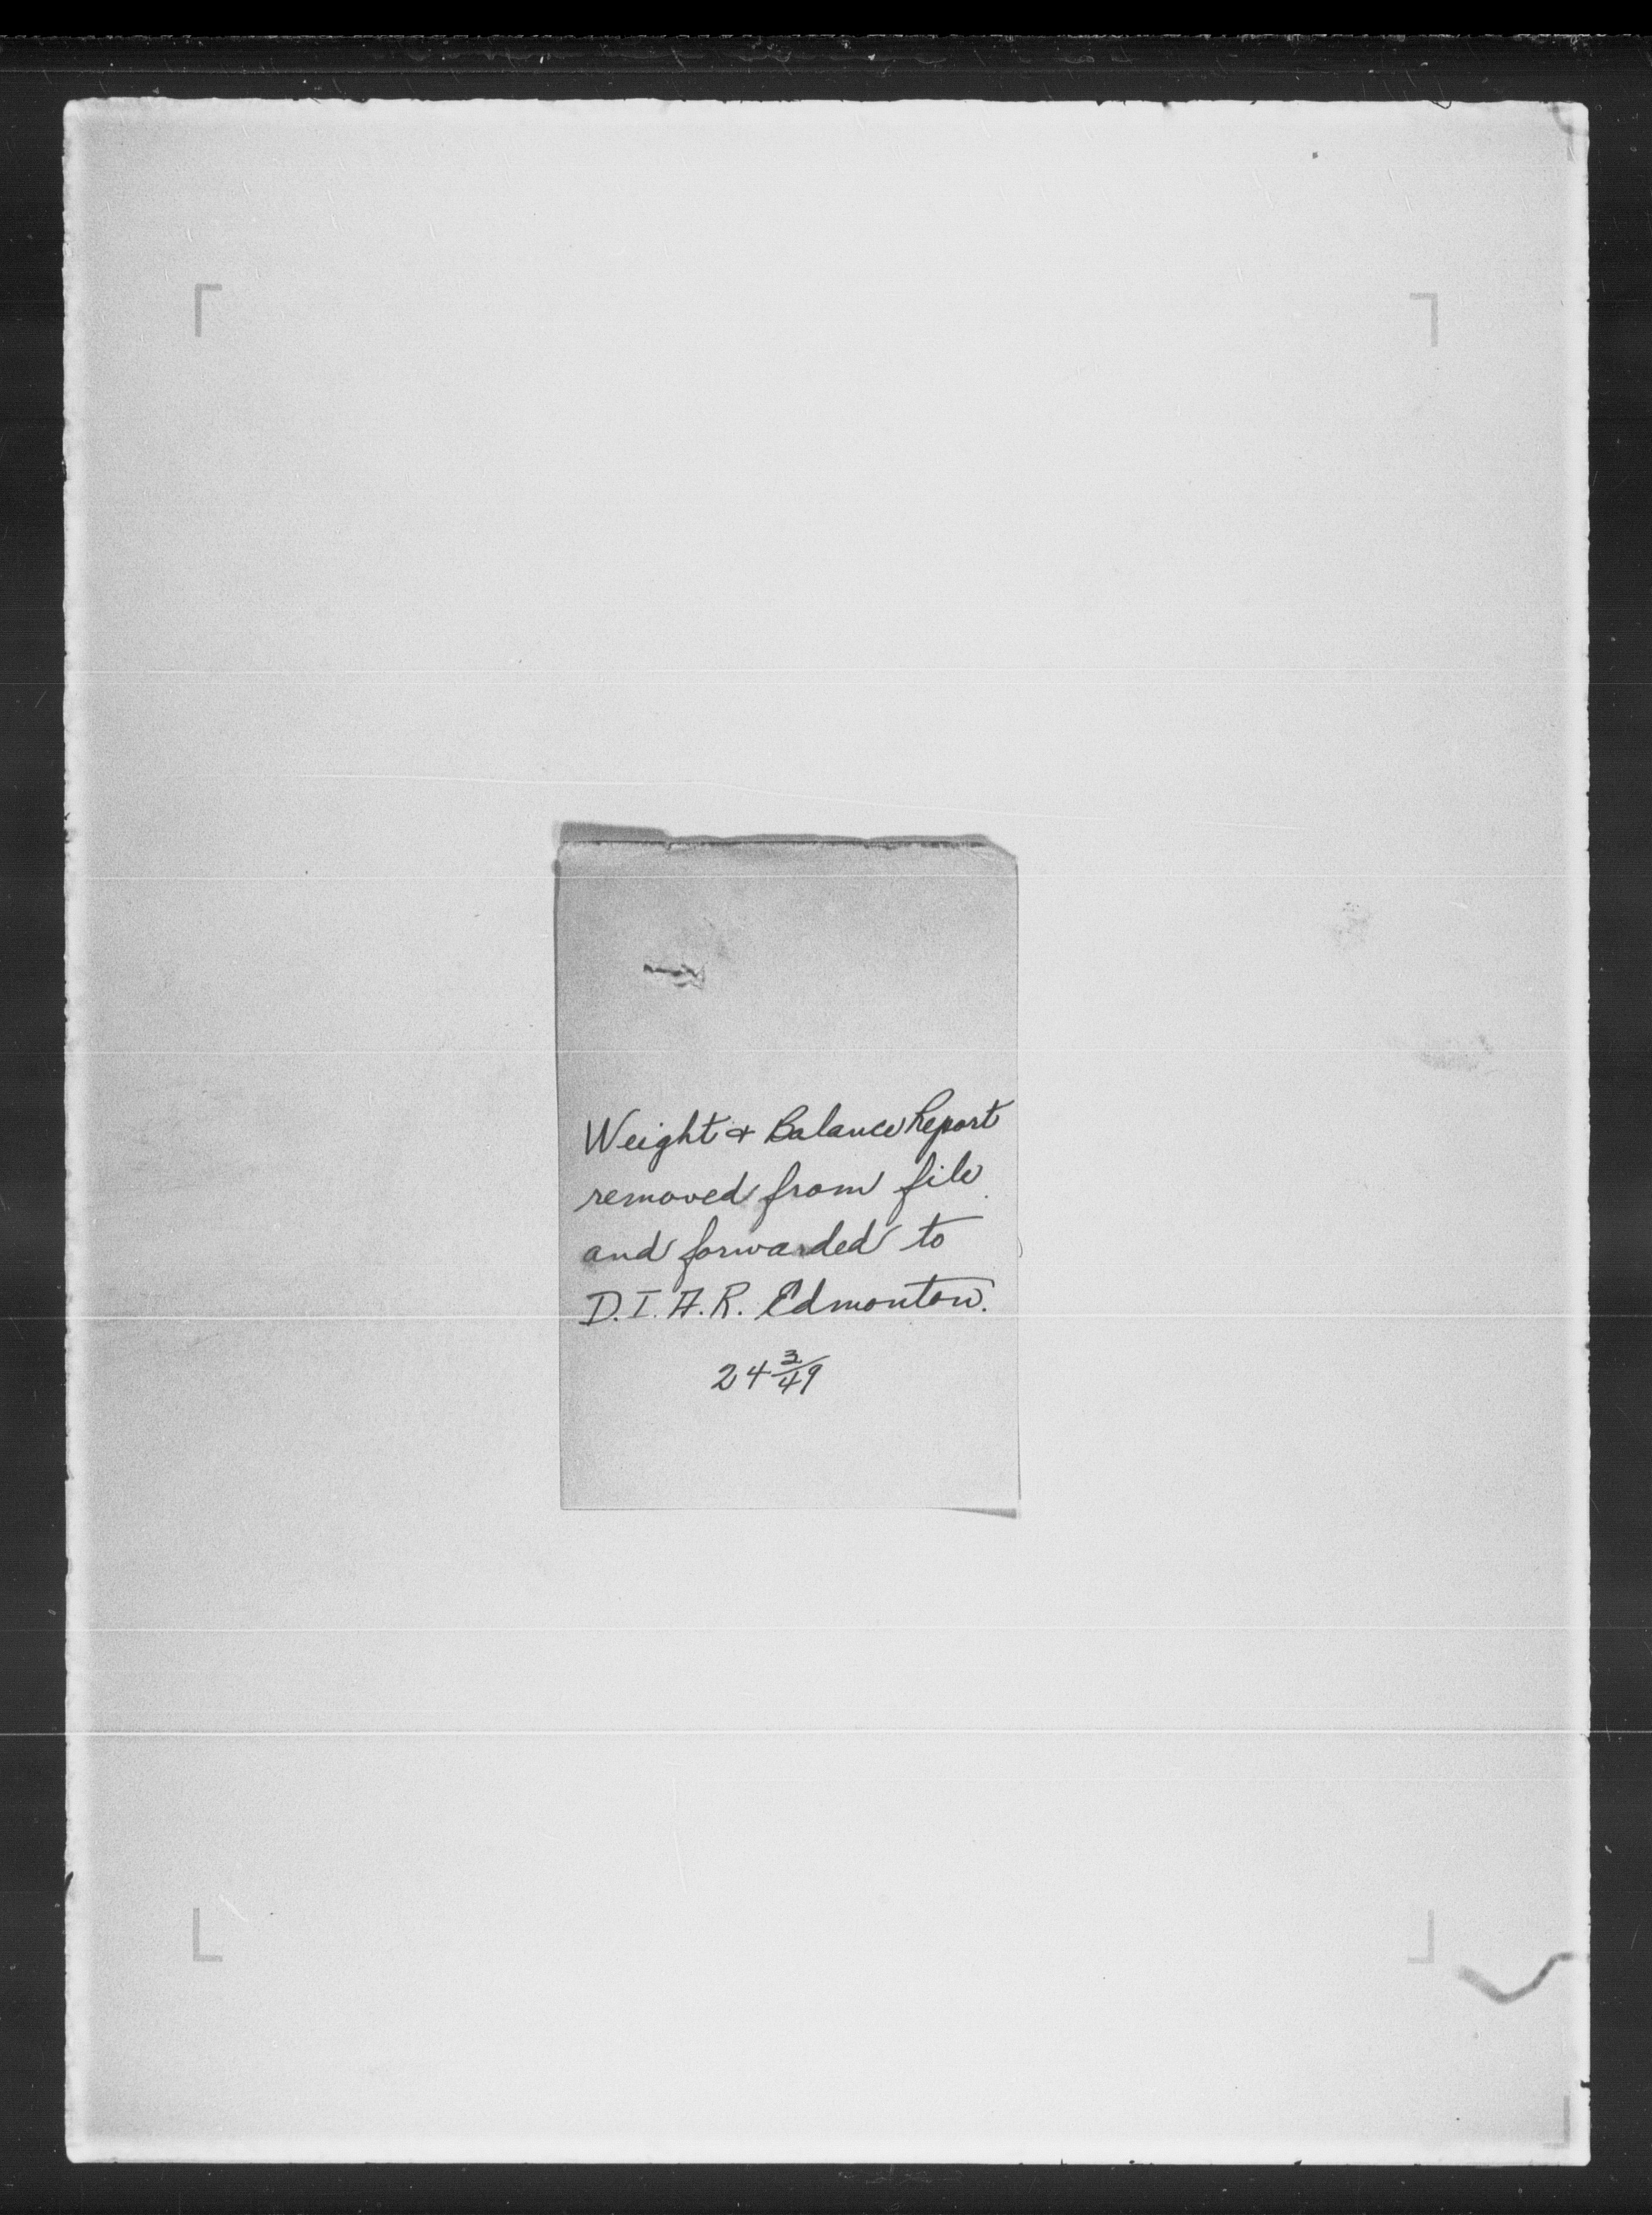 Weight & Balance Report
removed from file
and forwarded to
D.I.A.R. Edmonton.
24 3/49